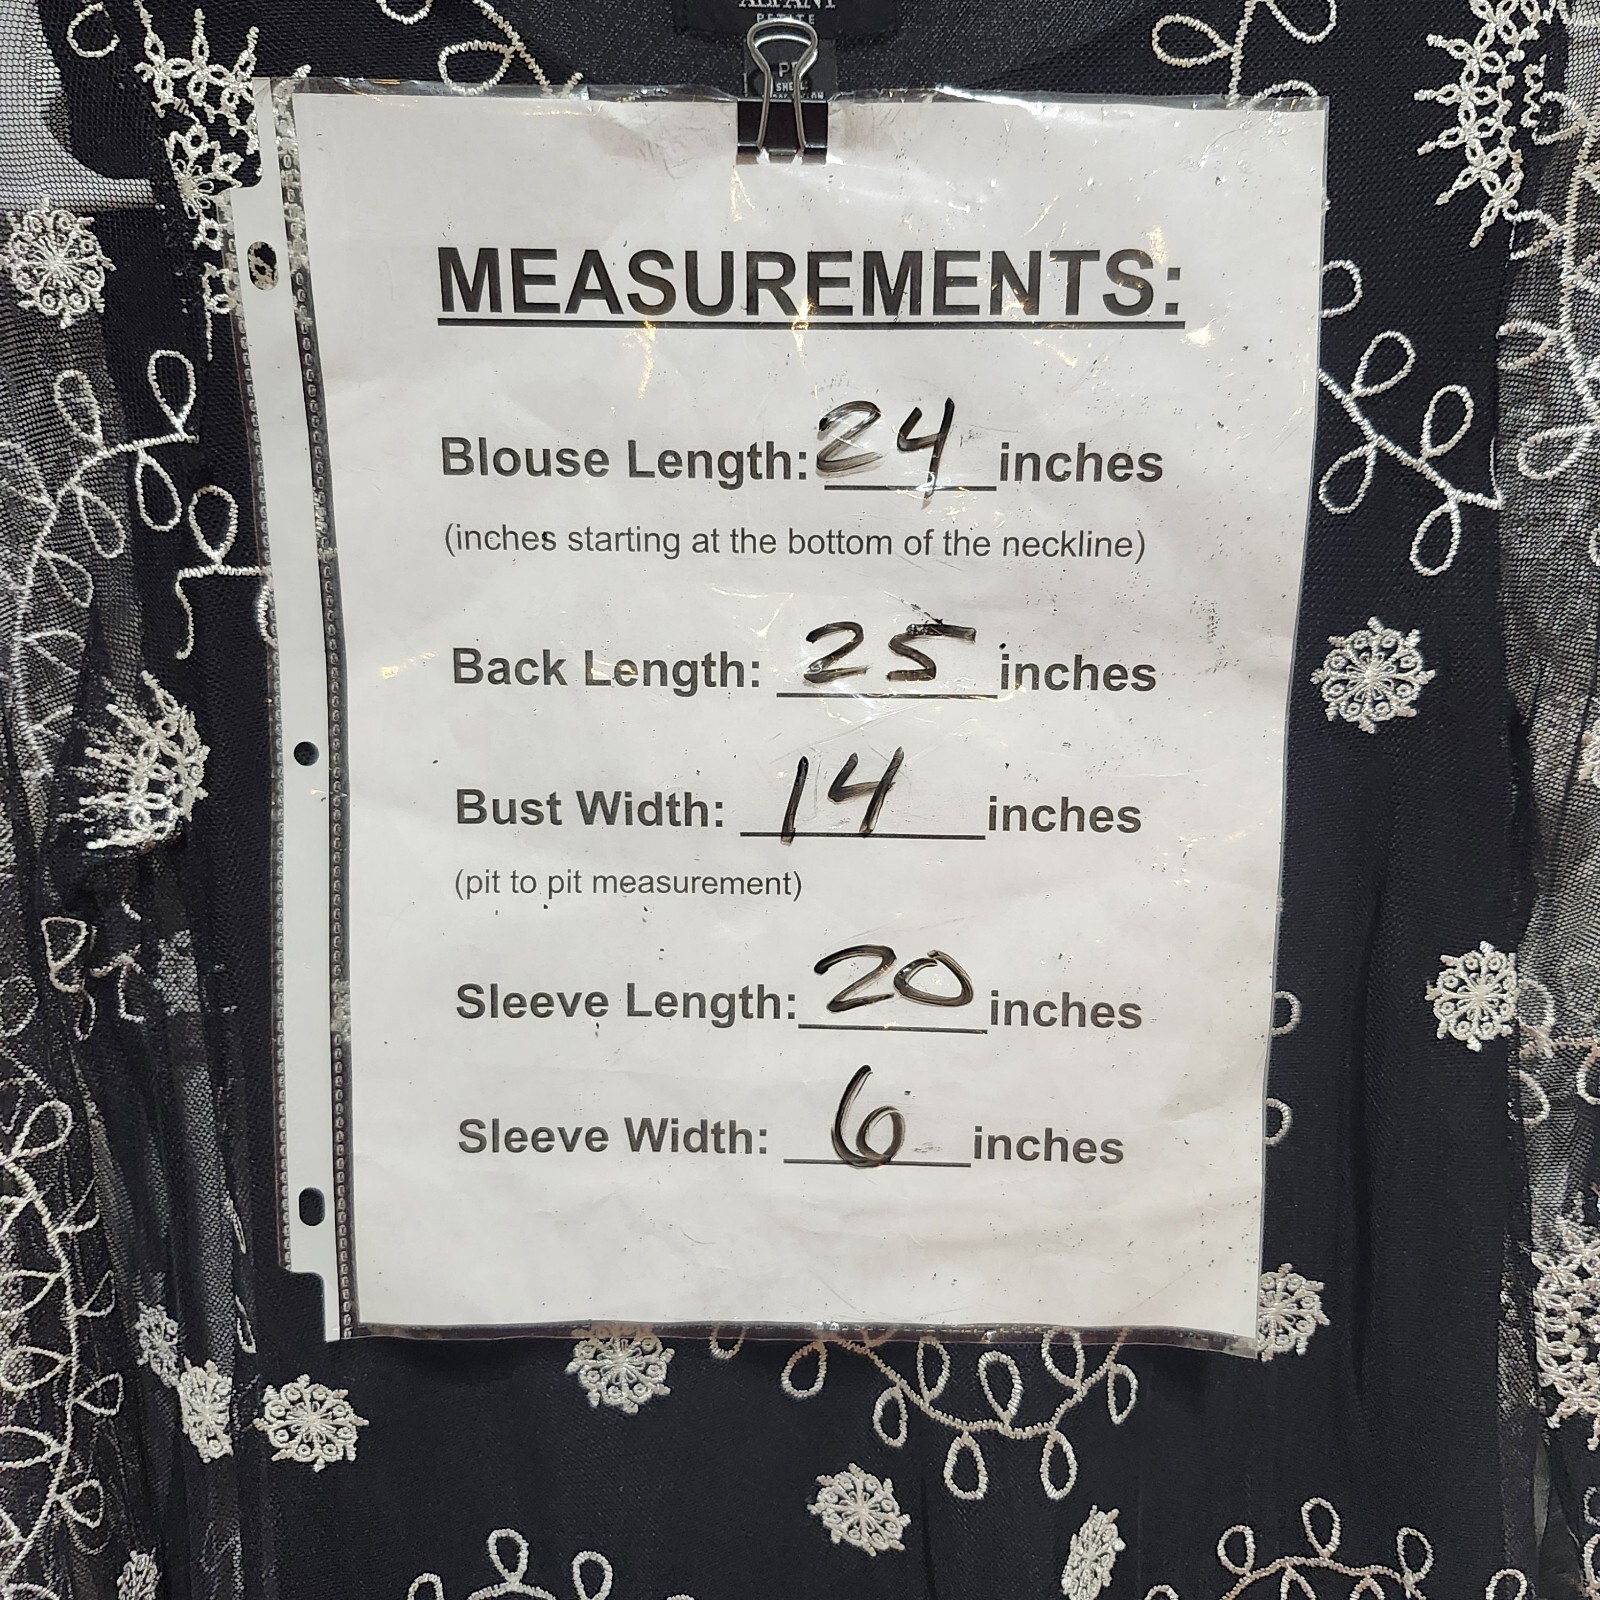 PETITE
MEASUREMENTS:
Blouse Length: 24 inches
(inches starting at the bottom of the neckline)
Back Length: 25 inches
Bust Width: 14 inches
(pit to pit measurement)
Sleeve Length: 20 inches
Sleeve Width: 6 inches